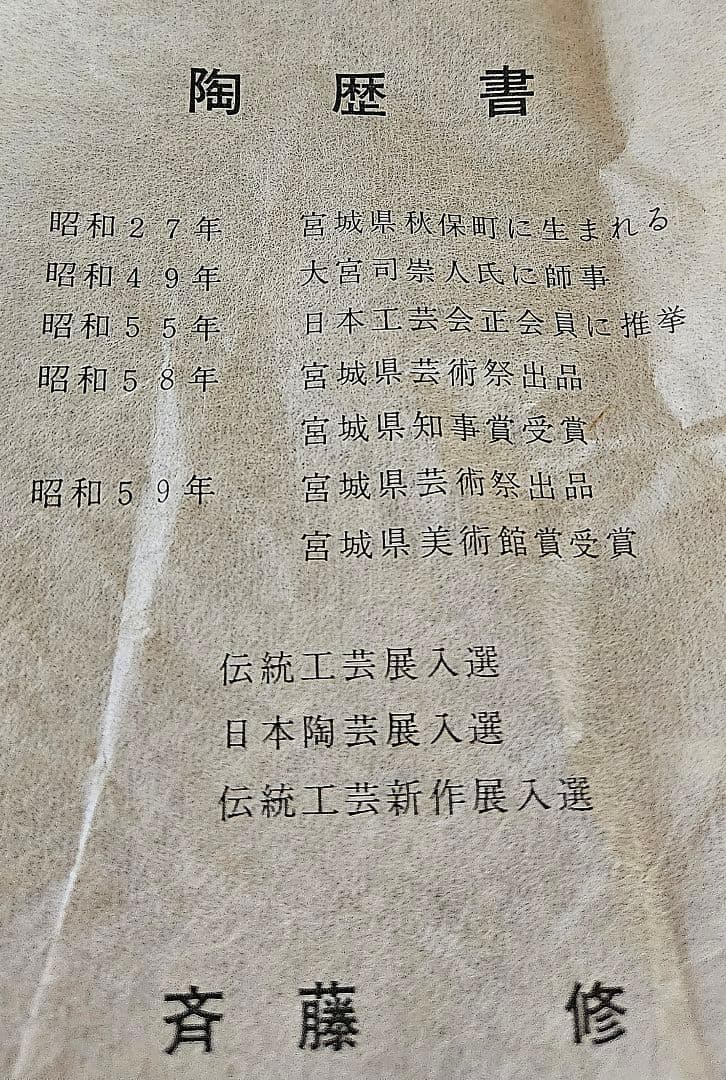 陶歴書
昭和27年 宮城県秋保町に生まれる
昭和49年 大宮司崇人氏に師事
昭和55年 日本工芸会正会員に推挙
昭和58年 宮城県芸術祭出品
宮城県知事賞受賞
昭和59年 宮城県芸術祭出品
宮城県美術館賞受賞
伝統工芸展入選
日本陶芸展入選
伝統工芸新作展入選
斉藤 修